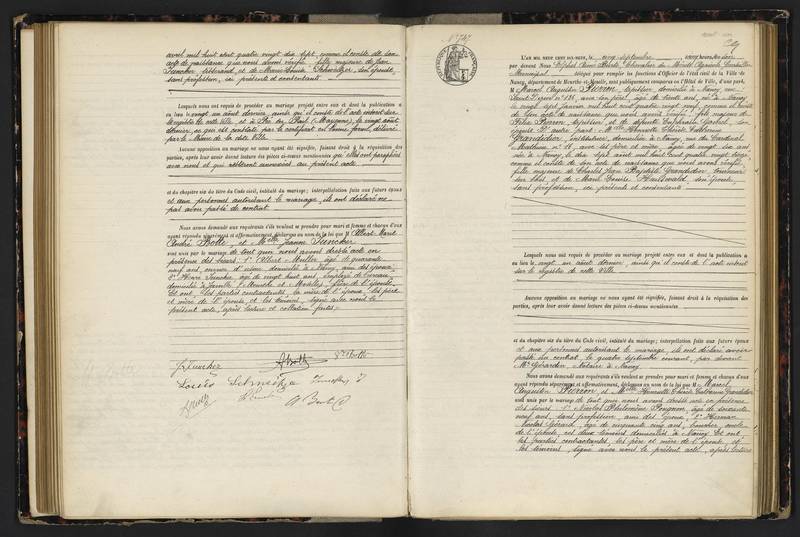 avril mil huit cent quatre vingt dix sept, comme il conste de son
acte de naissance que nous avons vérifié, fille majeure de Jean
Juncker, et de Marie Louise son épouse,
sans profession, ici présents et consentants
Lesquels nous ont requis de procéder au mariage projeté entre eux et dont la publication a
eu lieu le vingt un août dernier, ainsi qu'il conste de l'acte inscrit sur
registre de cette ville et à le vingt août
dernier, ce qui est constaté par le certificat en bonne forme, délivré
par le Maire de la dite ville
Aucune opposition au mariage ne nous ayant été signifiée, faisant droit à la réquisition des
parties, après leur avoir donné lecture des pièces ci-dessus mentionnées qui ont été paraphées
avec nous et qui resteront annexées au présent acte
et du chapitre six du titre du Code civil, intitulé du mariage; interpellation faite aux futurs époux
et aux personnes autorisant le mariage, ils ont déclaré ne
pas avoir passé de contrat
Nous avons demandé aux requérants s'ils veulent se prendre pour mari et femme et chacun d'eux
ayant répondu séparément et affirmativement, déclarons au nom de la loi que M Albert Marie
André Botté, et Melle Jeanne Juncker
sont unis par le mariage de tout quoi nous avons dressé acte en
présence des sieurs 1° Albert Muller, âgé de quarante
neuf ans, domicilié à Nancy, ami des époux
2° Henri Juncker, âgé de vingt huit ans, employé de bureau,
domicilié à frère de l'épouse
Et ont, les parties contractantes, la mère de l'époux, les père
et mère de l'épouse et les témoins, signé avec nous le
présent acte, après lecture et collation faites
J. Juncker ABotté
N° 747
L'AN MIL NEUF CENT DIX-NEUF, le neuf septembre
par devant Nous
Municipal, délégué pour remplir les fonctions d'Officier de l'état civil de la Ville de
Nancy, département de Meurthe-et-Moselle, sont publiquement comparus en l'Hôtel de Ville, d'une part,
M Marcel Augustin Pierron, tapissier, domicilié à Nancy, rue
âgé de trente ans, né à Nancy
le vingt sept janvier mil huit cent quatre vingt neuf, comme il conste
de son acte de naissance que nous avons vérifié, fils majeur de
Pierron, tapissier, et de défunte
d'autre part: Melle Henriette Thérèse Catherine
Grandidier, institutrice, domiciliée à Nancy, rue du
Mathieu n° 18, avec ses père et mère, âgée de vingt six ans
née à Nancy le dix sept août mil huit cent quatre vingt treize
comme il conste de son acte de naissance que nous avons vérifié,
fille majeure de Charles Jean Baptiste Grandidier, tourneur
sur bois, et de Marie Louise son épouse,
sans profession, ici présents et consentants
Lesquels nous ont requis de procéder au mariage projeté entre eux et dont la publication a
eu lieu le vingt un août dernier, ainsi qu'il conste de l'acte inscrit
sur le registre de cette ville
Aucune opposition au mariage ne nous ayant été signifiée, faisant droit à la réquisition des
parties, après leur avoir donné lecture des pièces ci-dessus mentionnées
et du chapitre six du titre du Code civil, intitulé du mariage; interpellation faite aux futurs époux
et aux personnes autorisant le mariage, ils ont déclaré avoir
passé un contrat, le quatre septembre courant, par devant
Me Gérardin, Notaire à Nancy
Nous avons demandé aux requérants s'ils veulent se prendre pour mari et femme et chacun d'eux
ayant répondu séparément et affirmativement, déclarons au nom de la loi que M Marcel
Augustin Pierron, et Melle Henriette Thérèse Catherine Grandidier
sont unis par le mariage de tout quoi nous avons dressé acte en présence
des sieurs 1° Nicolas Philomène Pougnon, âgé de soixante
neuf ans, sans profession, ami des époux, 2°
Nicolas Gérard, âgé de cinquante cinq ans, boucher, oncle
de l'épouse, ces deux témoins domiciliés à Nancy. Et ont,
les parties contractantes, les père et mère de l'épouse et
les témoins, signé avec nous le présent acte, après lecture